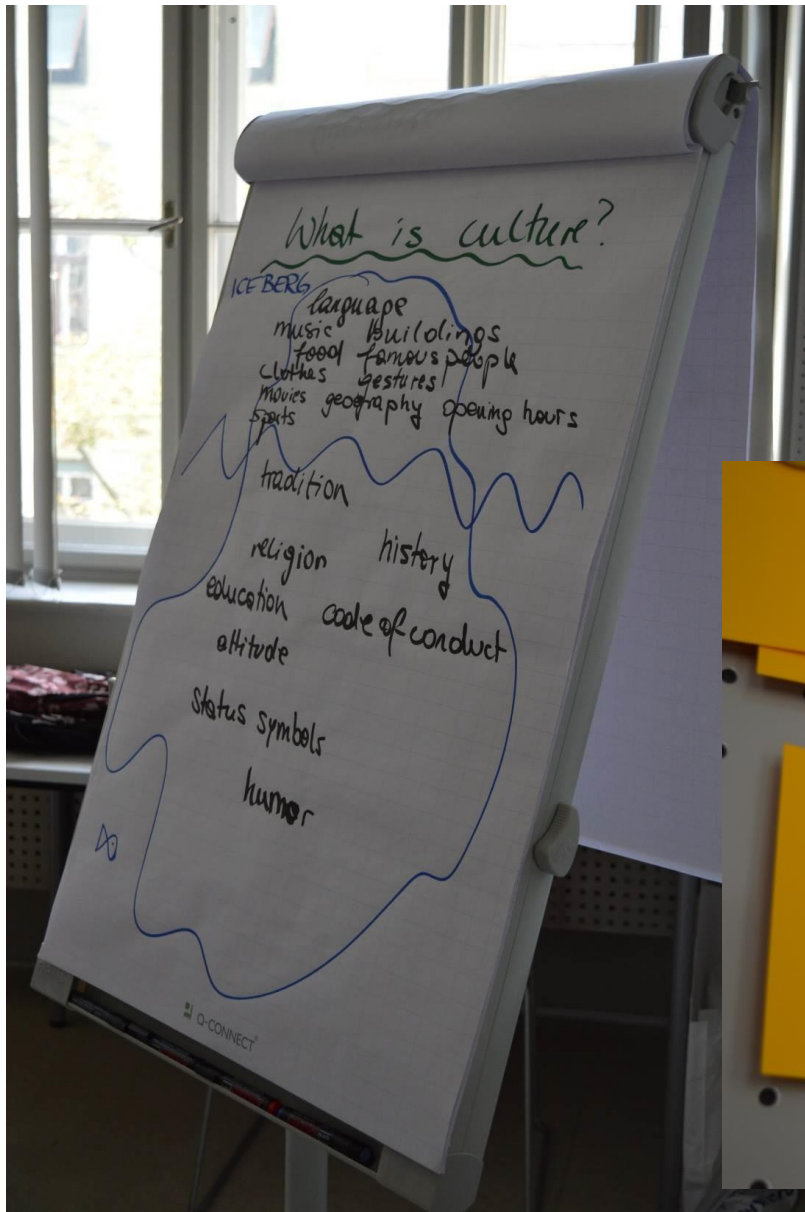 What is culture?
ICEBERG
language
music buildings
food famous people
clothes gestures
movies geography opening hours
sports
tradition
religion history
education code of conduct
attitude
status symbols
humor
Q-CONNECT®